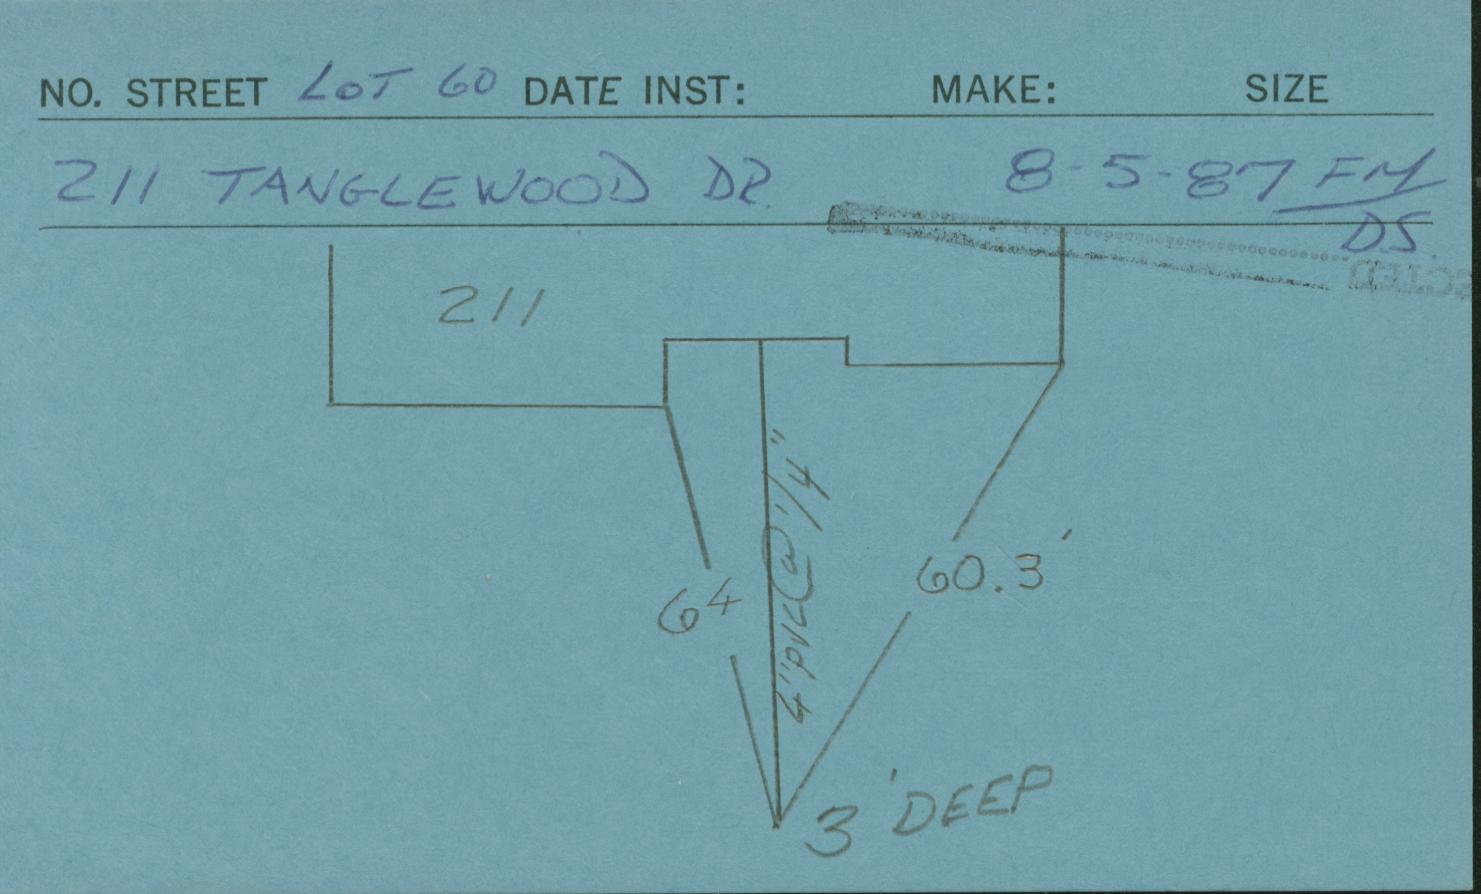 NO. STREET LOT 60 DATE INST: MAKE: SIZE
211 TANGLEWOOD DR. 8-5-87 FM
DS.
211
4" PVC @ 1/4"
64
60.3'
3' DEEP